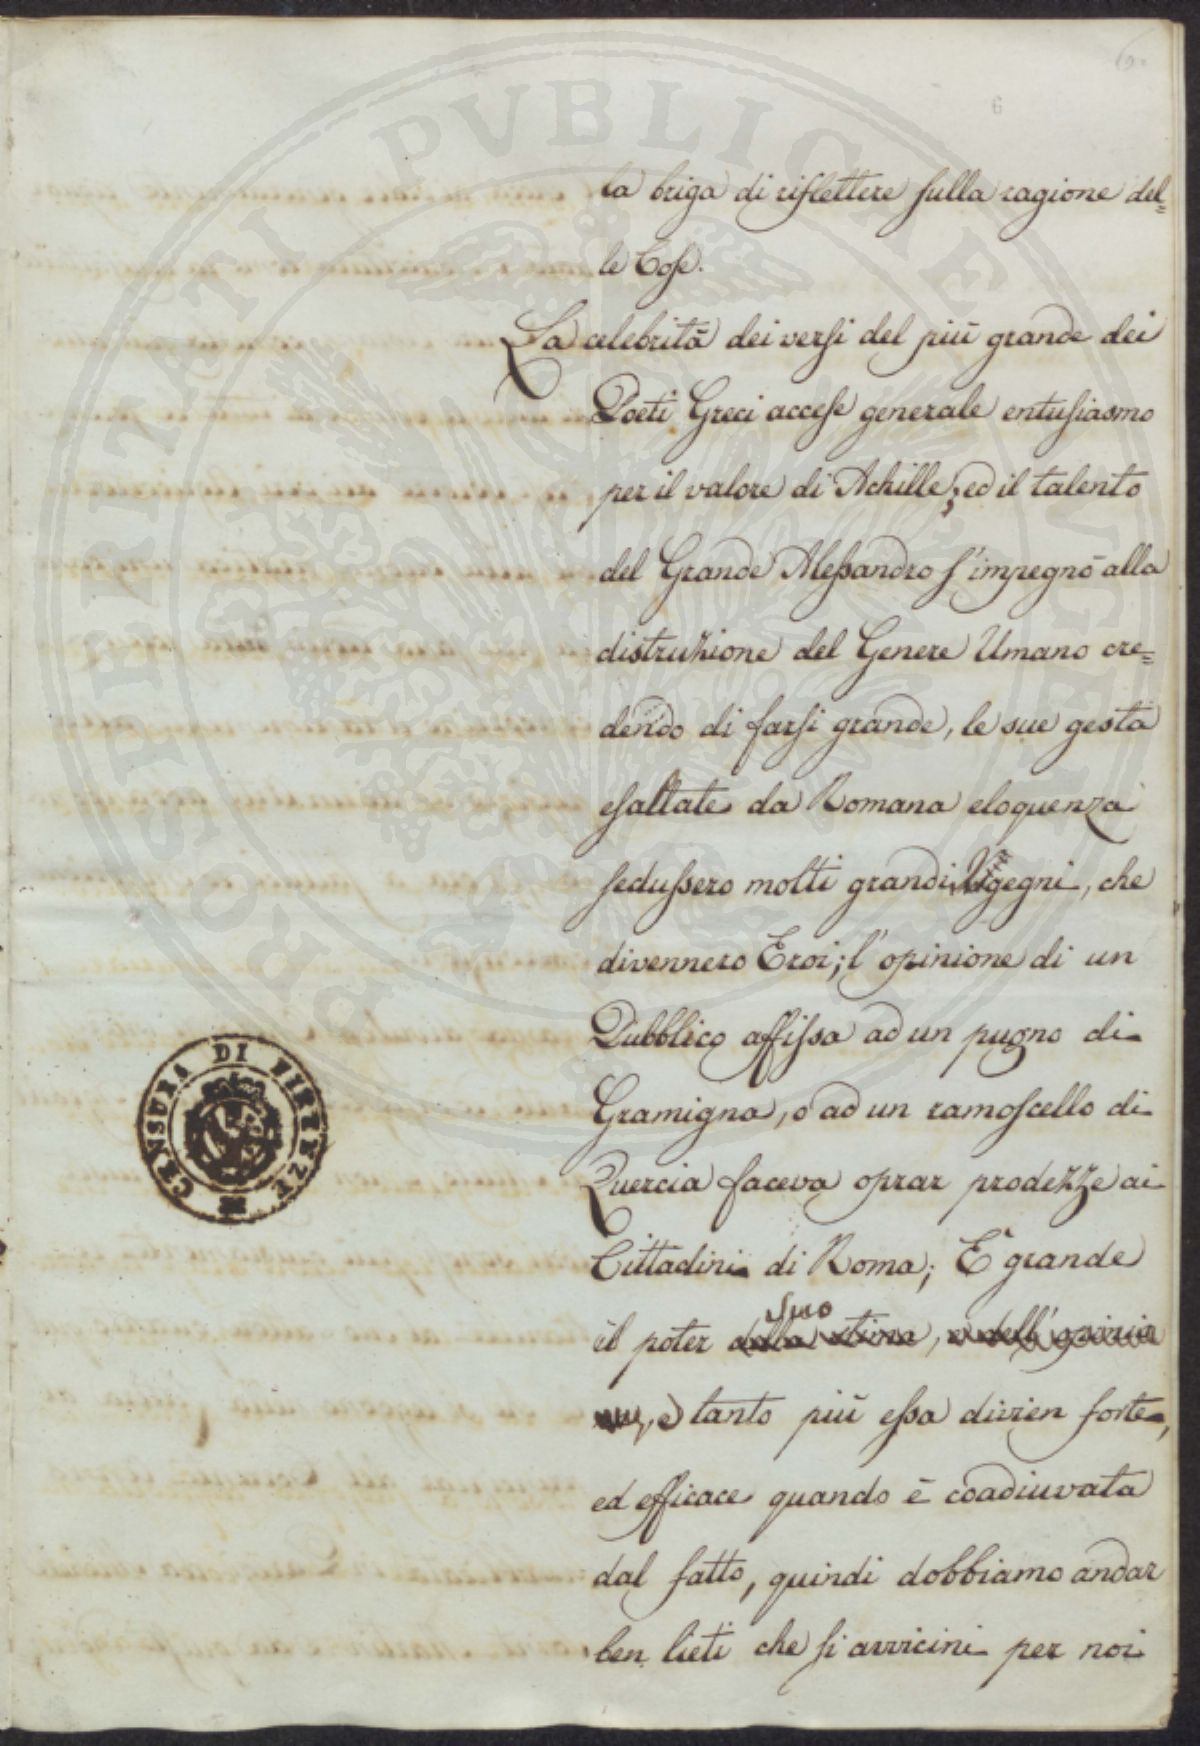 6
6
la briga di riflettere sulla ragione del=
le Cose.
La celebrità dei versi del più grande dei
Poeti Greci accese generale entusiasmo
per il valore di Achille; ed il talento
del Grande Alessandro s'impegnò alla
distruzione del Genere Umano cre=
dendo di farsi grande, le sue gesta
esaltate da Romana eloquenza
sedussero molti grandi Ingegni, che
divennero Eroi; l'opinione di un
Pubblico affissa ad un pugno di
Gramigna, o ad un ramoscello di
Quercia faceva oprar prodezze ai
Cittadini di Roma; È grande
suo
il poter della stima, e dell'opinio
ne, e tanto più essa divien forte,
ed efficace quando è coadiuvata
dal fatto, quindi dobbiamo andar
ben lieti che si avvicini per noi
CENSURA DI FIRENZE
PROSPERITATI PVBLICAE AVGENDAE